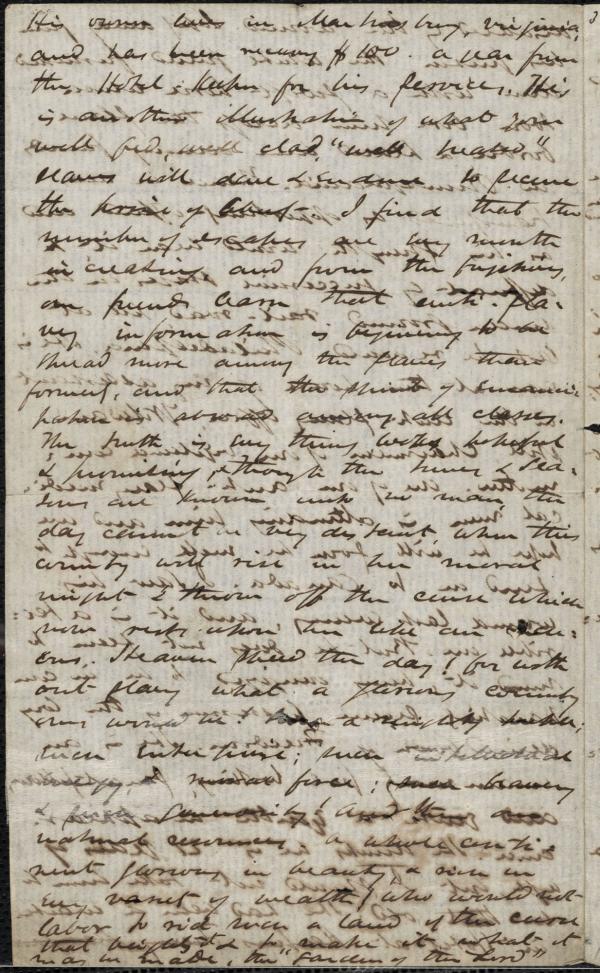 His owner lives in Martinsburg, Virginia,
and has been receiving $100. a year from
the Hotel-Keeper for his services. This
is another illustration of what your
well fed, well clad, "well treated"
slaves will dare & endure to secure
the of I find that the
number of escapes are every month
increasing and from the fugitives,
our friends learn that anti-sla-
very information is beginning to be
spread more among the slaves than
formerly, and that the spirit of emanci-
pation is abroad among all classes.
The truth is every thing looks hopeful
& promising, & though the times & sea-
sons are known unto no man, the
day cannot be very distant, when this
country will rise in her moral
might & throw off the curse which
now rests upon her like an
Heaven speed the day! for with
out slavery what a glorious country
ours would be! a mighty
enterprise; such intellectual
& moral force; such bravery
& generosity! And then our
natural resources, a whole conti-
nent glorious in beauty & rich in
every variety of wealth! who would not
labor to rid such a land of the curse
that blights it & to make it what it
was in made, the "Garden of the Lord"
3